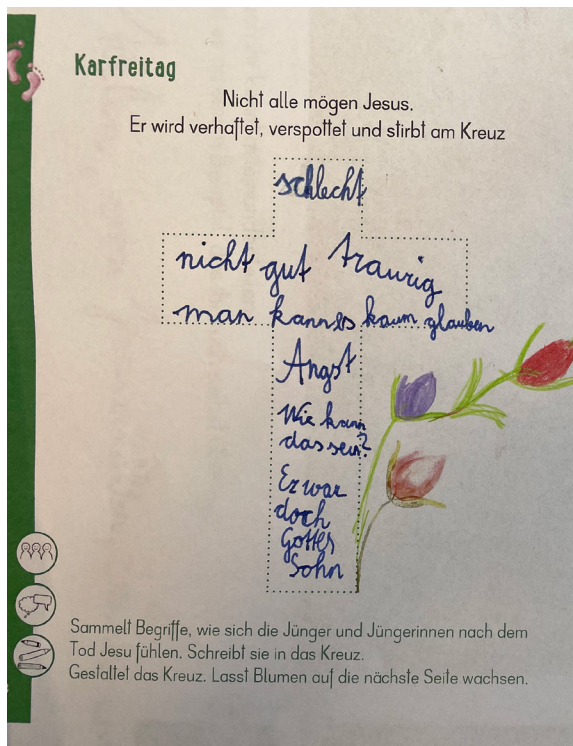 Karfreitag
Nicht alle mögen Jesus.
Er wird verhaftet, verspottet und stirbt am Kreuz
schlecht
nicht gut traurig
man kann es kaum glauben
Angst
Wie kann
das sein?
Er war
doch
Gottes
Sohn
Sammelt Begriffe, wie sich die Jünger und Jüngerinnen nach dem
Tod Jesu fühlen. Schreibt sie in das Kreuz.
Gestaltet das Kreuz. Lasst Blumen auf die nächste Seite wachsen.